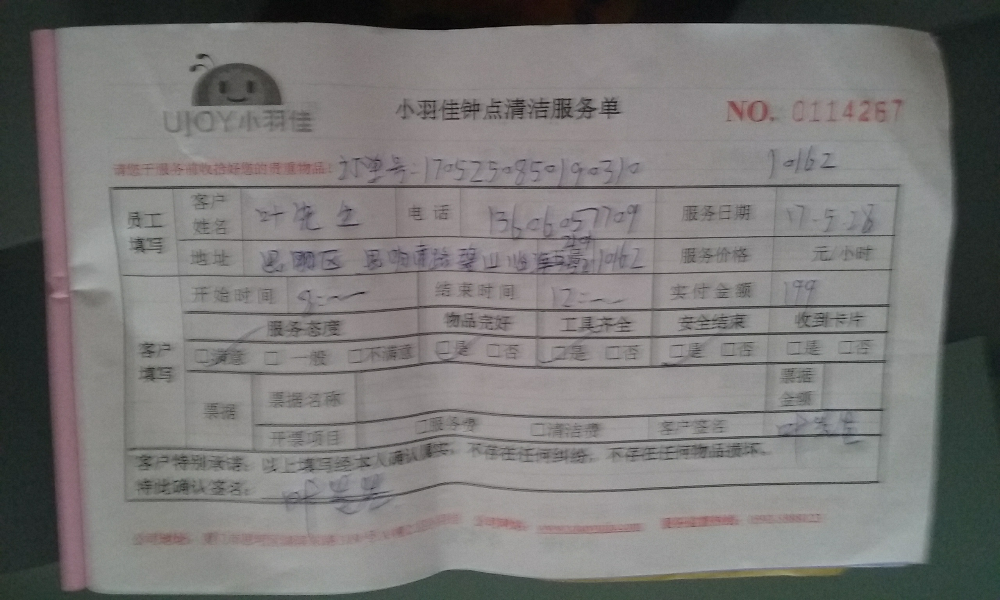 UJOY小羽佳
小羽佳钟点清洁服务单
NO. 0114267
请您于服务前收拾好您的贵重物品: 订单号:1705250850190310
10162
员工填写 客户姓名 叶先生 电话 13606057709 服务日期 17-5.28
地址 思明区 10162 服务价格 元/小时
客户填写 开始时间 8:~ 结束时间 12:~ 实付金额 199
服务态度 物品完好 工具齐全 安全结束 收到卡片
☑满意 □一般 □不满意 ☑是 □否 ☑是 □否 ☑是 □否 □是 □否
票据 票据名称 票据金额
开票项目 □服务费 □清洁费 客户签名 叶先生
客户特别承诺: 以上填写经本人确认属实, 不存在任何纠纷, 不存在任何物品损坏。
特此确认签名:
公司地址: